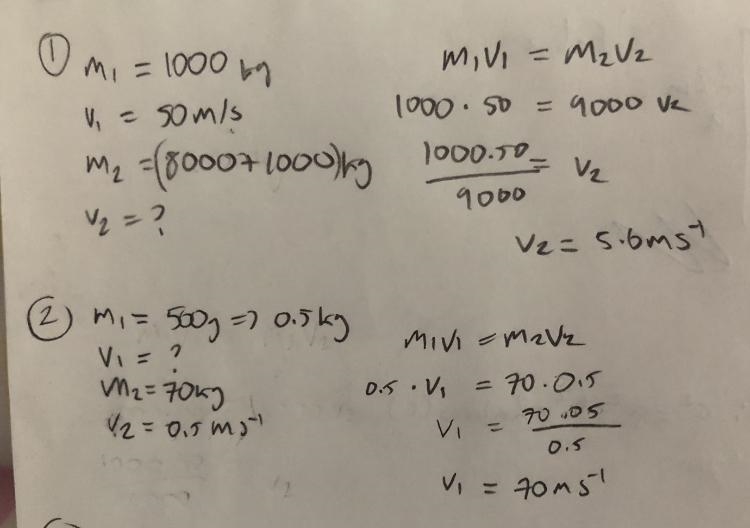 ① m₁ = 1000 kg
v₁ = 50 m/s
m₂ = (8000 + 1000) kg
v₂ = ?
m₁v₁ = m₂v₂
1000 · 50 = 9000 v₂
1000.50 / 9000 = v₂
v₂ = 5.6 ms⁻¹
② m₁ = 500g => 0.5 kg
v₁ = ?
m₂ = 70kg
v₂ = 0.5 ms⁻¹
m₁v₁ = m₂v₂
0.5 · v₁ = 70 · 0.5
v₁ = 70 · 05 / 0.5
v₁ = 70 ms⁻¹